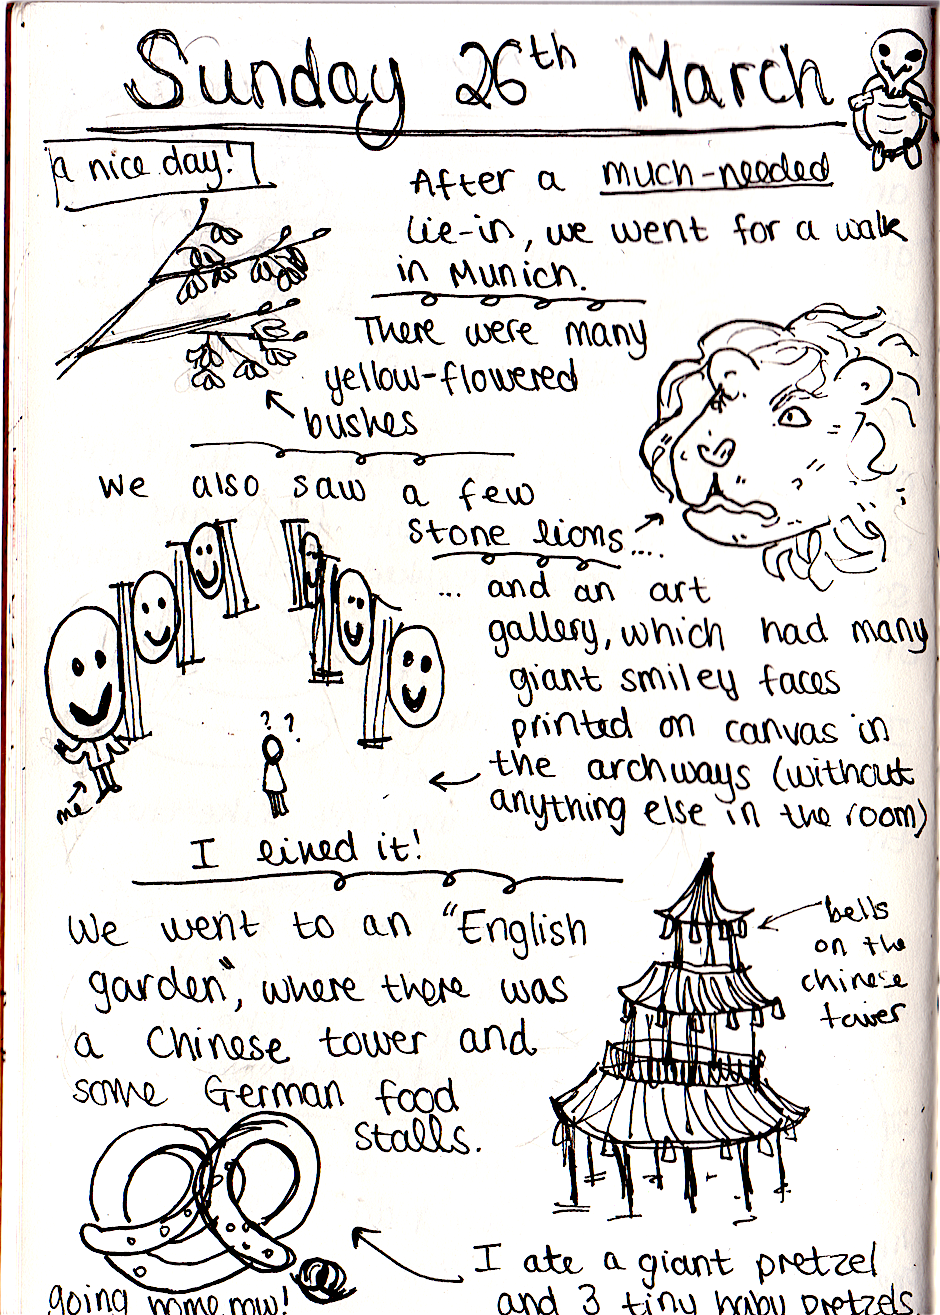 Sunday 26th March
a nice day!
After a much-needed
lie-in, we went for a walk
in Munich.
There were many
yellow-flowered
bushes
We also saw a few
stone lions....
... and an art
gallery, which had many
giant smiley faces
printed on canvas in
the archways (without
anything else in the room)
? ?
me
I liked it!
We went to an "English
garden", where there was
a Chinese tower and
some German food
stalls.
bells
on the
chinese
tower
I ate a giant pretzel
and 3 tiny baby pretzels
going home now!